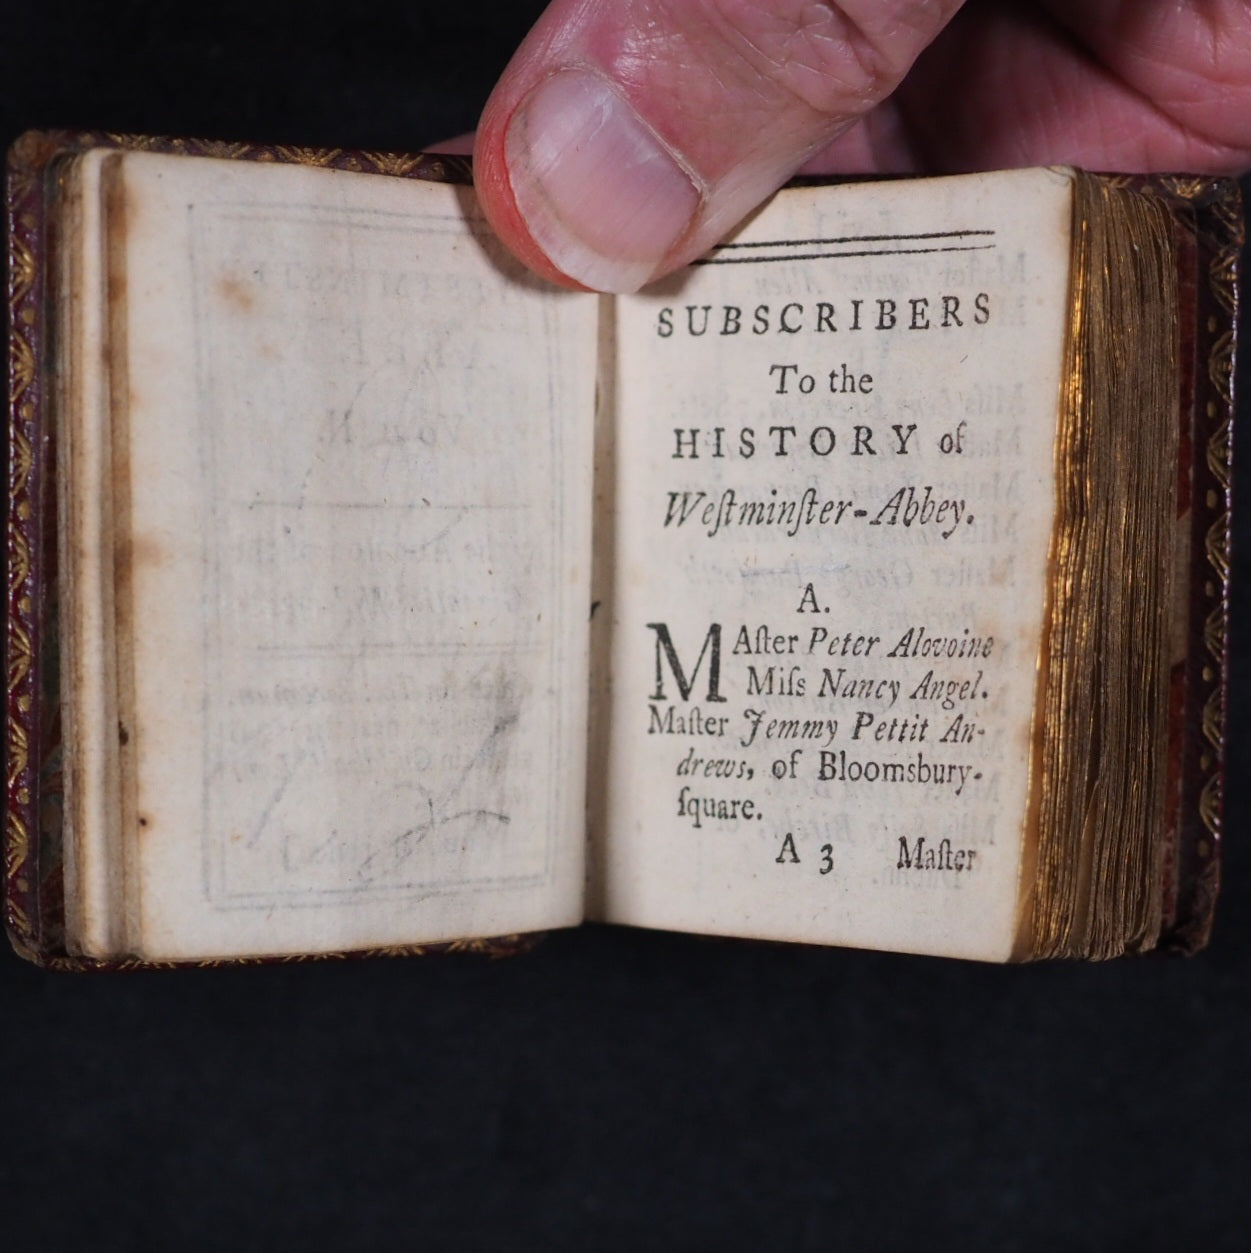 SUBSCRIBERS
To the
HISTORY of
Weſtminſter-Abbey.
A.
MAſter Peter Alovoine
Miſs Nancy Angel.
Maſter Jemmy Pettit An-
drews, of Bloomsbury-
ſquare.
A 3 Maſter